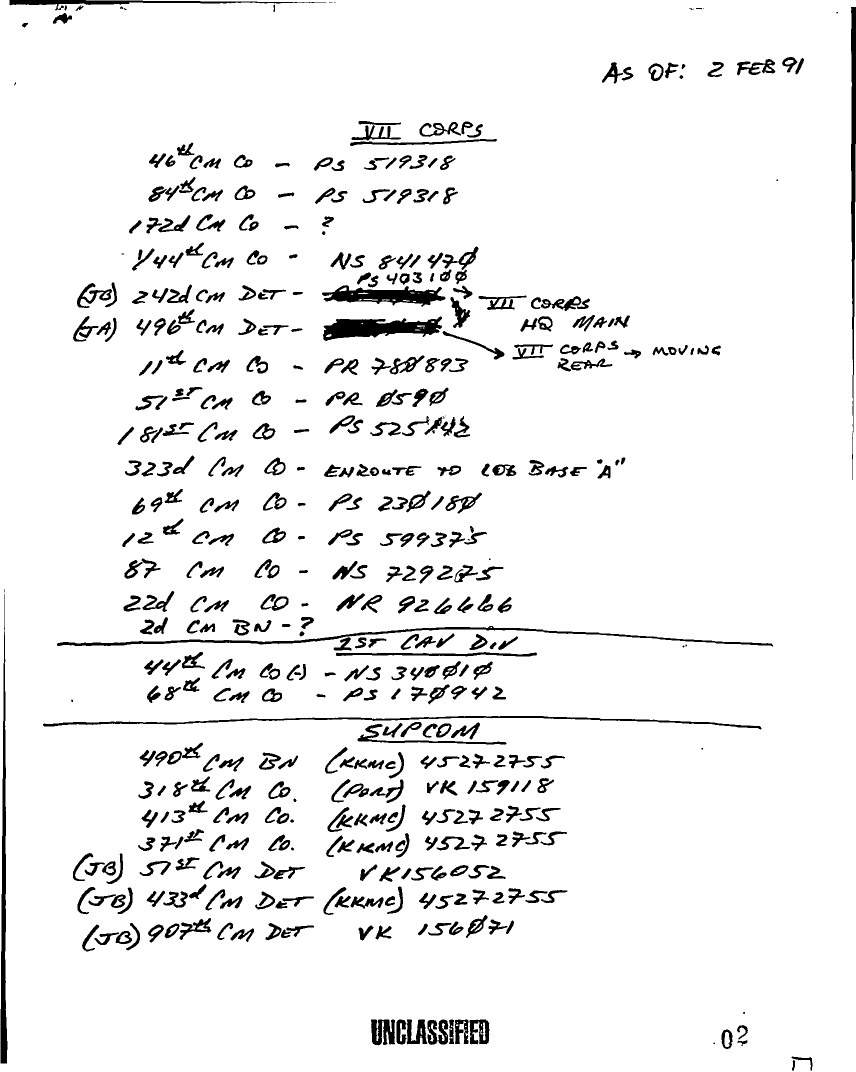 AS OF: 2 FEB 91
VII CORPS
46th CM CO - PS 519318
84th CM CO - PS 519318
172d CM CO - ?
1/44th CM CO - NS 84147Ø
PS 4Ø31ØØ
(JB) 242d CM DET - → VII CORPS HQ MAIN
(JA) 496th CM DET - → VII CORPS REAR → MOVING
11th CM CO - PR 78Ø893
51ST CM CO - PR Ø59Ø
181ST CM CO - PS 525142
323d CM CO - ENROUTE TO LOG BASE "A"
69th CM CO - PS 23Ø18Ø
12th CM CO - PS 599375
87 CM CO - NS 729275
22d CM CO - NR 926666
2d CM BN - ?
1ST CAV DIV
44th CM CO (-) - NS 34ØØ1Ø
68th CM CO - PS 17Ø942
SUPCOM
490th CM BN (KKMC) 45272755
318th CM CO. (PORT) VK 159118
413th CM CO. (KKMC) 45272755
371ST CM CO. (KKMC) 45272755
(JB) 51ST CM DET VK156052
(JB) 433d CM DET (KKMC) 45272755
(JB) 907th CM DET VK 156Ø71
UNCLASSIFIED
02